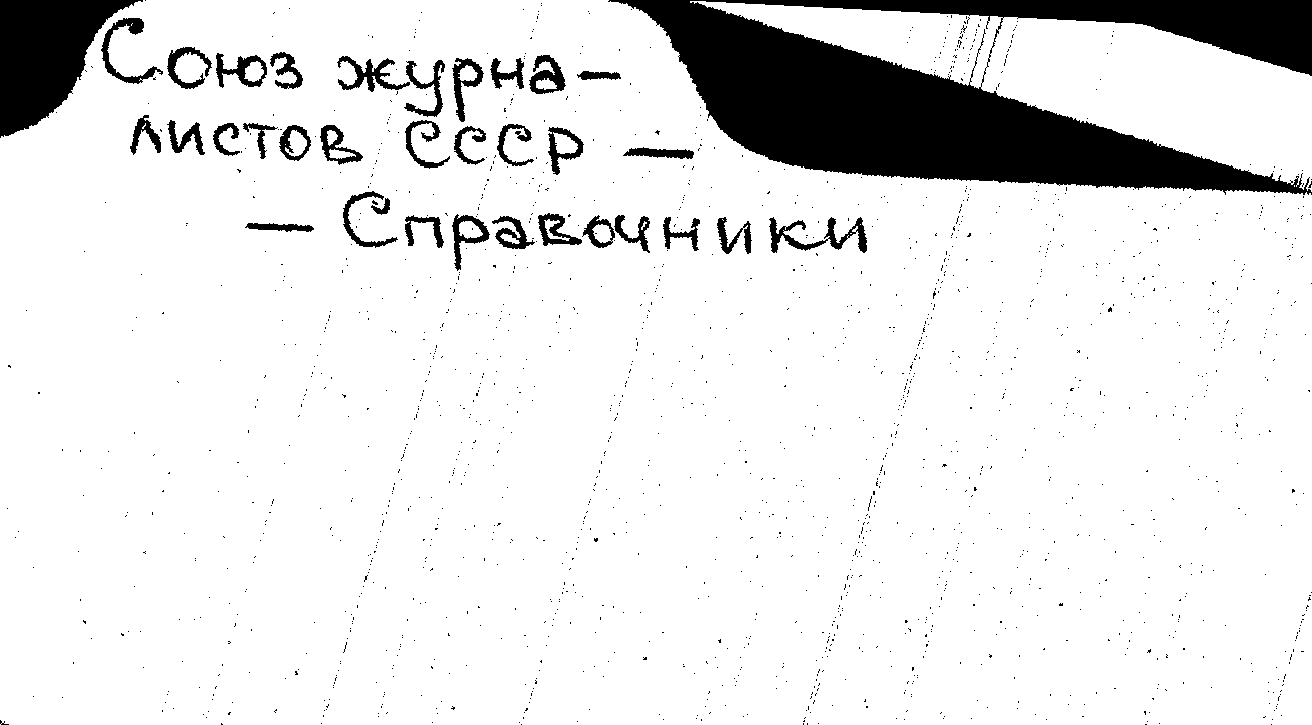 Союз журна-
листов СССР —
— Справочники